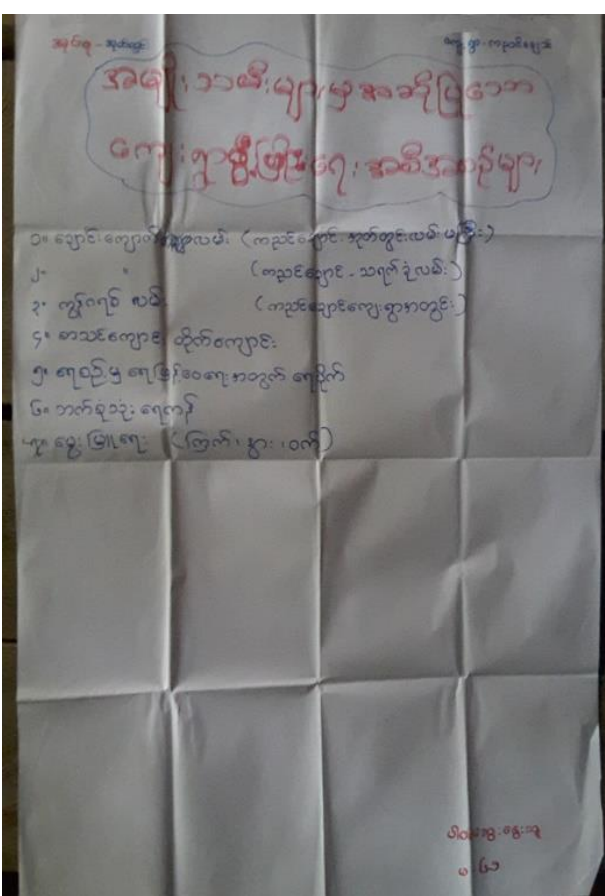 အုပ်စု - အုတ်တွင်း ကျေးရွာ - ကညင်ချောင်
အမျိုးသမီးများမှအဆိုပြုသော
ကျေးရွာဖွံ့ဖြိုးရေး အစီအစဉ်များ
၁။ ချောင်းကျောက်ချောလမ်း (ကညင်ချောင် အုတ်တွင်းလမ်းမကြီး)
၂။ " (ကညင်ချောင် - သရက်ခုံလမ်း)
၃။ ကွန်ကရစ် လမ်း (ကညင်ချောင်ကျေးရွာအတွင်း)
၄။ စာသင်ကျောင်း တိုက်ကျောင်း
၅။ ရေစဉ်မှ ရေဖြန့်ဝေရေးအတွက် ရေပိုက်
၆။ ဘက်စုံသုံး ရေကန်
၇။ မွေးမြူရေး (ကြက်၊ နွား၊ ဝက်)
ပါဝင်ဆွေးနွေးသူ
မ ၆၁